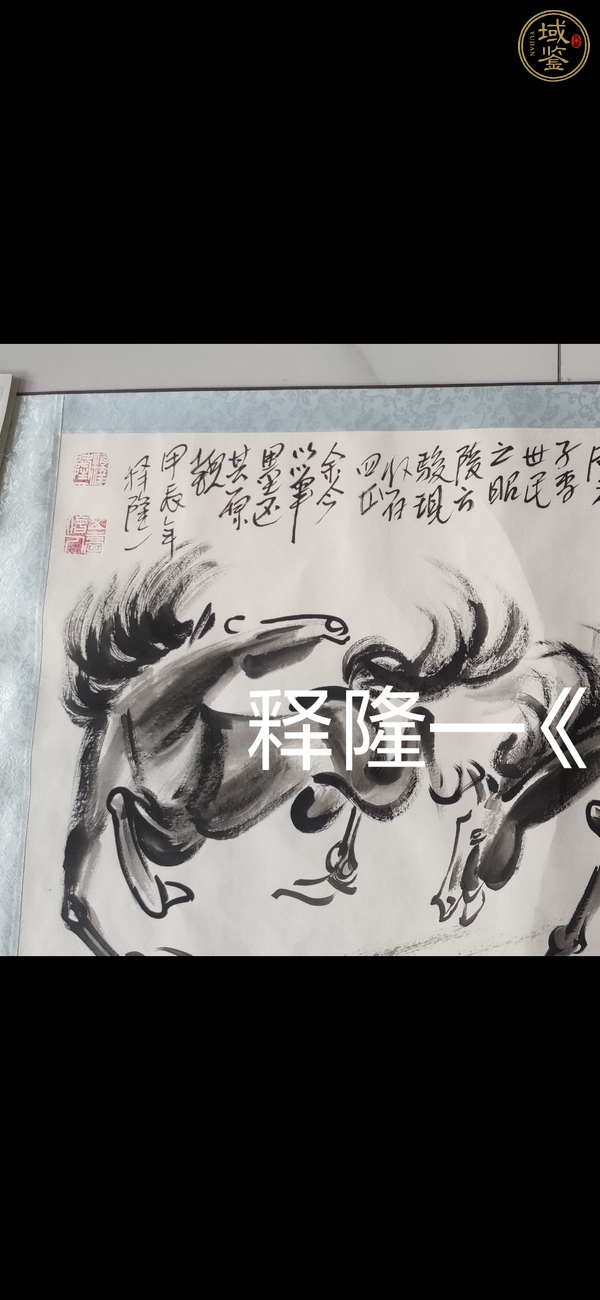 域鉴
YUJIAN
子李
世民
之昭
陵六
骏现
仅存
四匹
余今
以筆
墨还
其原
貌
甲辰年
释隆一
释隆一《